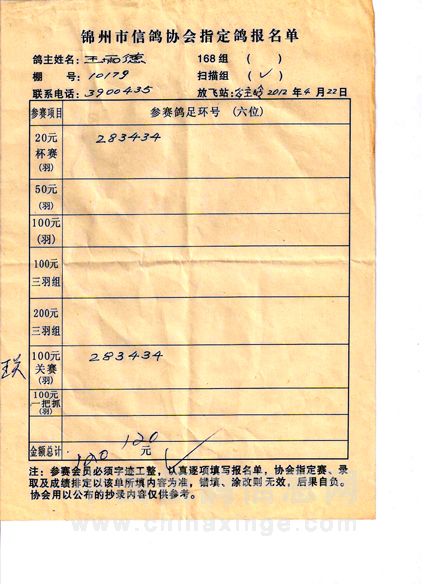 锦州市信鸽协会指定鸽报名单
鸽主姓名: 168组 ( )
棚 号: 10179 扫描组 (✓)
联系电话: 3900435 放飞站: 公主岭 2012年4月22日
参赛项目 参赛鸽足环号 (六位)
20元 283434
杯赛
(羽)
50元
(羽)
100元
(羽)
100元
三羽组
200元
三羽组
100元 283434
关赛
(羽)
100元
一把抓
(羽)
金额总计 120 元
120
注: 参赛会员必须字迹工整, 认真逐项填写报名单, 协会指定赛、录
取及成绩排定以该单所填内容为准, 错填、涂改则无效, 后果自负。
协会用以公布的抄录内容仅供参考。
www.chinaxinge.com